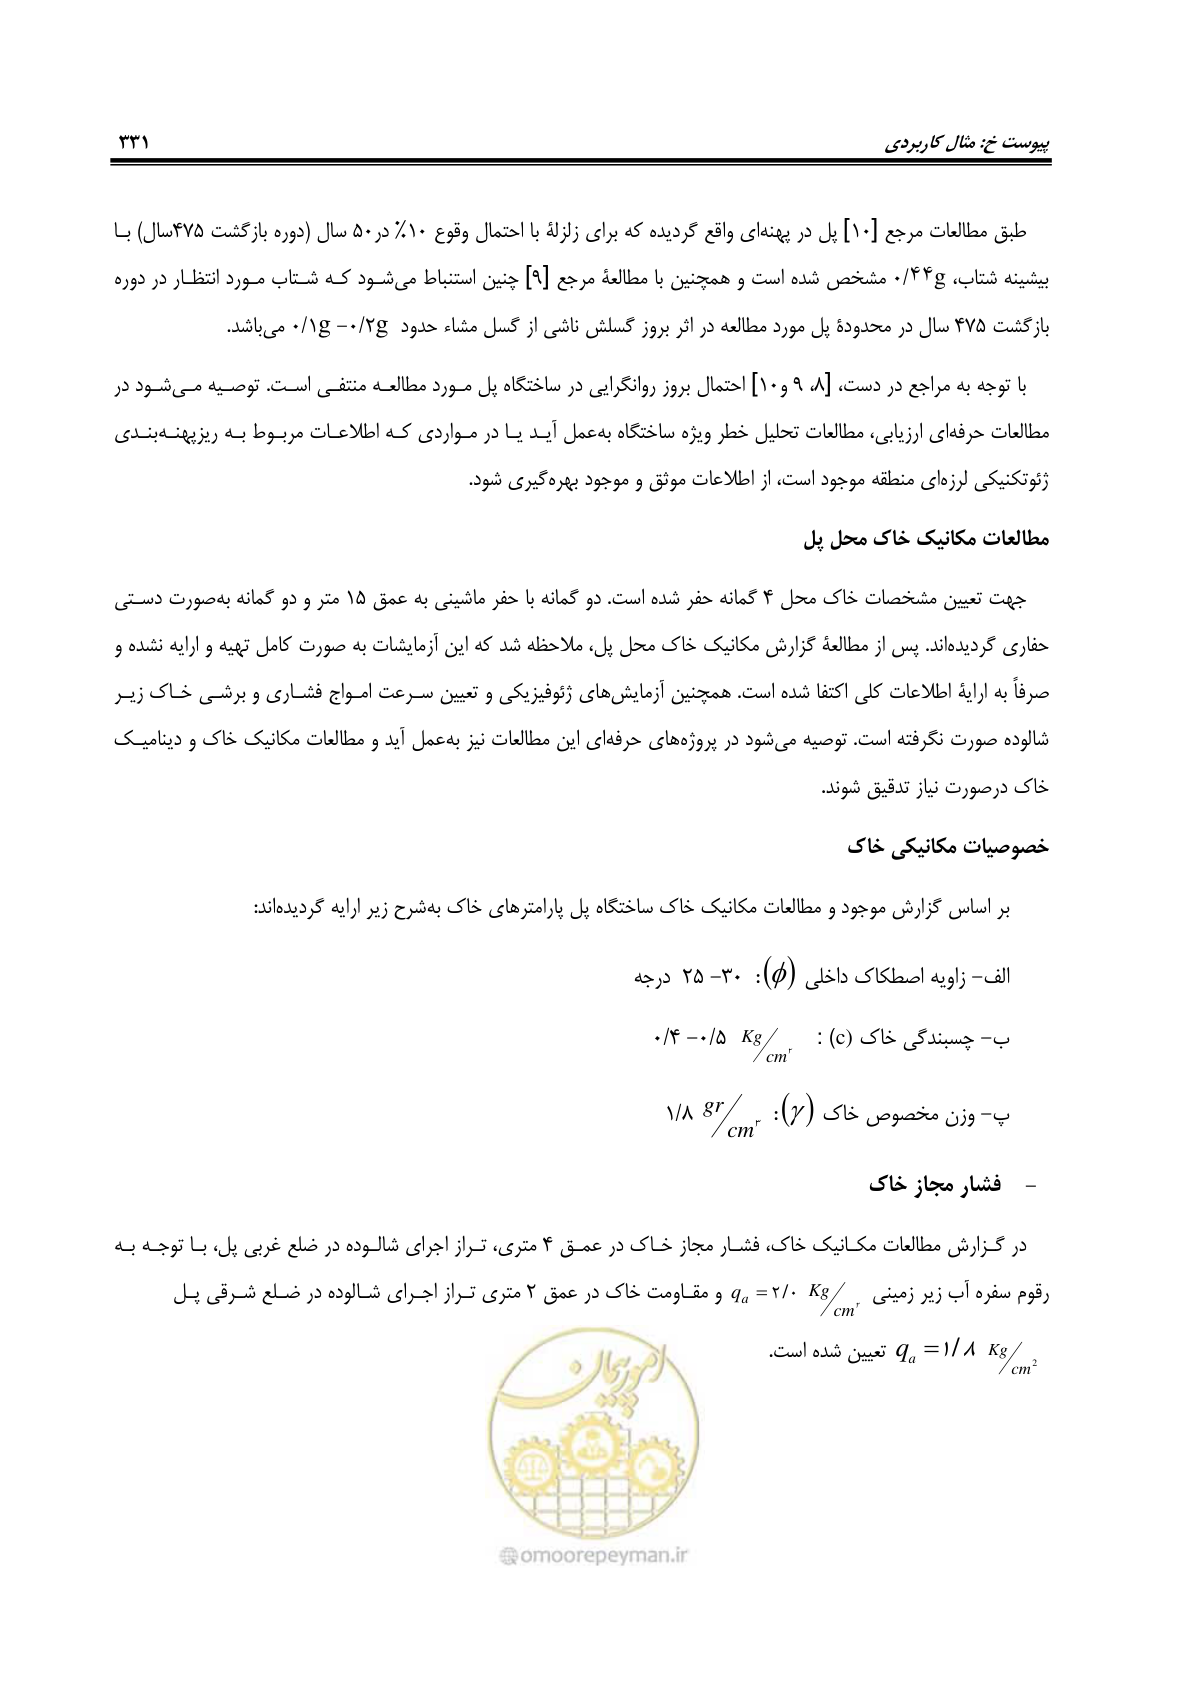 پیوست خ: مثال کاربردی ۳۳۱
طبق مطالعات مرجع [۱۰] پل در پهنه‌ای واقع گردیده که برای زلزلهٔ با احتمال وقوع ۱۰٪ در۵۰ سال (دوره بازگشت ۴۷۵سال) بـا
بیشینه شتاب، ۰/۴۴g مشخص شده است و همچنین با مطالعهٔ مرجع [۹] چنین استنباط می‌شـود کـه شـتاب مـورد انتظـار در دوره
بازگشت ۴۷۵ سال در محدودهٔ پل مورد مطالعه در اثر بروز گسلش ناشی از گسل مشاء حدود ۰/۱g –۰/۲g می‌باشد.
با توجه به مراجع در دست، [۸، ۹ و۱۰] احتمال بروز روانگرایی در ساختگاه پل مـورد مطالعـه منتفـی اسـت. توصـیه مـی‌شـود در
مطالعات حرفه‌ای ارزیابی، مطالعات تحلیل خطر ویژه ساختگاه به‌عمل آیـد یـا در مـواردی کـه اطلاعـات مربـوط بـه ریزپهنـه‌بنـدی
ژئوتکنیکی لرزه‌ای منطقه موجود است، از اطلاعات موثق و موجود بهره‌گیری شود.
مطالعات مکانیک خاک محل پل
جهت تعیین مشخصات خاک محل ۴ گمانه حفر شده است. دو گمانه با حفر ماشینی به عمق ۱۵ متر و دو گمانه به‌صورت دسـتی
حفاری گردیده‌اند. پس از مطالعهٔ گزارش مکانیک خاک محل پل، ملاحظه شد که این آزمایشات به صورت کامل تهیه و ارایه نشده و
صرفاً به ارایهٔ اطلاعات کلی اکتفا شده است. همچنین آزمایش‌های ژئوفیزیکی و تعیین سـرعت امـواج فشـاری و برشـی خـاک زیـر
شالوده صورت نگرفته است. توصیه می‌شود در پروژه‌های حرفه‌ای این مطالعات نیز به‌عمل آید و مطالعات مکانیک خاک و دینامیـک
خاک درصورت نیاز تدقیق شوند.
خصوصیات مکانیکی خاک
بر اساس گزارش موجود و مطالعات مکانیک خاک ساختگاه پل پارامترهای خاک به‌شرح زیر ارایه گردیده‌اند:
الف– زاویه اصطکاک داخلی (ϕ): ۳۰– ۲۵ درجه
ب– چسبندگی خاک (c) : ۰/۴ –۰/۵ Kg/cm۲
پ– وزن مخصوص خاک (γ): ۱/۸ gr/cm۳
– فشار مجاز خاک
در گـزارش مطالعات مکـانیک خاک، فشـار مجاز خـاک در عمـق ۴ متری، تـراز اجرای شالـوده در ضلع غربی پل، بـا توجـه بـه
رقوم سفره آب زیر زمینی qa = ۲/۰ Kg/cm۲ و مقـاومت خاک در عمق ۲ متری تـراز اجـرای شـالوده در ضـلع شـرقی پـل
qa = ۱/۸ Kg/cm2 تعیین شده است.
امور پیمان
@omoorepeyman.ir